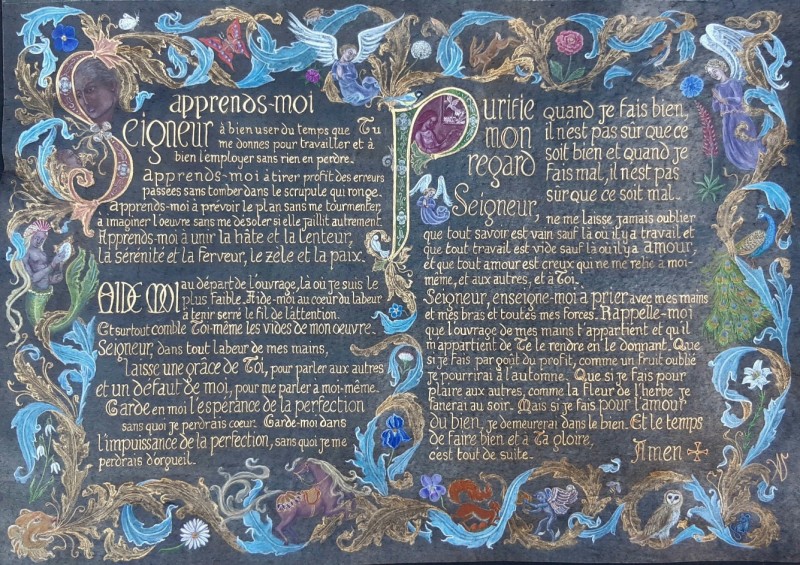 apprends-moi
Seigneur à bien user du temps que Tu
me donnes pour travailler et à
bien l'employer sans rien en perdre.
apprends-moi à tirer profit des erreurs
passées sans tomber dans le scrupule qui ronge.
apprends-moi à prévoir le plan sans me tourmenter,
a imaginer l'oeuvre sans me désoler si elle jaillit autrement.
Apprends-moi à unir la hâte et la lenteur,
la sérénité et la ferveur, le zèle et la paix.
AIDE MOI au départ de l'ouvrage, là où je suis le
plus faible. Aide-moi au coeur du labeur
à tenir serré le fil de l'attention.
Et surtout comble Toi-même les vides de mon oeuvre.
Seigneur, dans tout labeur de mes mains,
laisse une grâce de Toi, pour parler aux autres
et un défaut de moi, pour me parler à moi-même.
Garde en moi l'espérance de la perfection
sans quoi je perdrais coeur. Garde-moi dans
l'impuissance de la perfection, sans quoi je me
perdrais d'orgueil.
Purifie
mon
regard
quand je fais bien,
il n'est pas sûr que ce
soit bien et quand je
fais mal, il n'est pas
sûr que ce soit mal..
Seigneur, ne me laisse jamais oublier
que tout savoir est vain sauf là où il y a travail et
que tout travail est vide sauf là où il y a amour,
et que tout amour est creux qui ne me relie à moi-
même, et aux autres, et à Toi.
Seigneur, enseigne-moi a prier avec mes mains
et mes bras et toutes mes forces. Rappelle-moi
que l'ouvrage de mes mains t'appartient et qu'il
m'appartient de Te le rendre en le donnant. Que
si je fais par goût du profit, comme un fruit oublié
je pourrirai à l'automne. Que si je fais pour
plaire aux autres, comme la fleur de l'herbe je
fanerai au soir. Mais si je fais pour l'amour
du bien, je demeurerai dans le bien. Et le temps
de faire bien et à Ta gloire,
c'est tout de suite.
Amen